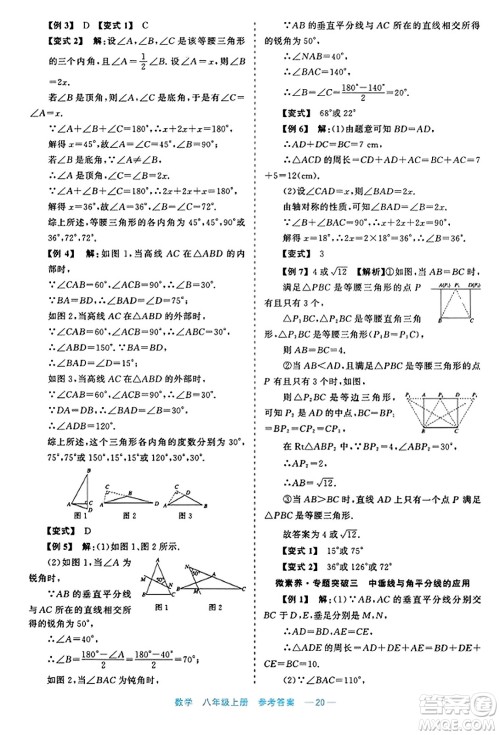 【例3】 D 【变式1】 C
【变式2】 解：设∠A、∠B、∠C是该等腰三角形
的三个内角，且∠A=1/2∠B. 设∠A=x，则∠B
=2x.
若∠B是顶角，则∠A、∠C是底角，
∴∠C=∠A=x.
∵∠A+∠B+∠C=180°，∴x+2x+x=180°，
解得x=45°，故2x=90°.
若∠B是底角，∵∠A≠∠B，
∴∠A是顶角，∠C=∠B=2x.
∵∠A+∠B+∠C=180°，∴x+2x+2x=180°，
解得x=36°，故2x=72°.
综上所述，等腰三角形的各内角为45°，45°，90°或
36°，72°，72°.
【例4】 解：如图1，当高线AC在△ABD的内
部时，
∵∠CAB=60°，∴∠B=30°.
∵BA=BD，∴∠BAD=∠BDA=75°.
如图2，当高线AC在△ABD的外部时，
∵∠CAB=60°，∴∠ABC=30°.
∵BA=BD，∴∠BAD=∠D=15°，
∴∠ABD=150°.
如图3，当高线AC在△ABD的外部时，
∵∠CAB=60°，∴∠B=30°.
∵DA=DB，∴∠DAB=∠B=30°，
∴∠ADB=120°.
综上所述，三角形各内角的度数分别为30°，
75°，75°或15°，15°，150°或30°，30°，120°.
图1 图2 图3
【变式】 D
【例5】 解：(1)如图1，如图2所示.
(2)如图1，当△ABC是
锐角三角形时，
∵AB的垂直平分线
与AC所在的直线相交
所得的锐角为50°，
图1 图2
∴∠A=40°，
∴∠B=∠C=(180°-∠A)/2=(180°-40°)/2=70°.
如图2，当△ABC是钝角三角形时，
∵AB的垂直平分线与AC所在的直线相交所得
的锐角为50°，
∴∠BAC=140°，
∴∠ABC=∠C=(180°-140°)/2=20°.
【变式】 68°或22°
【例6】 解：(1)由题意可知BD=AD，
∴AD+DC=BD+DC=BC=7 cm，
∴△ACD的周长=AD+CD+AC=BC+AC=7
+5=12(cm).
(2)设∠CAD=x，则∠BAD=2x.
由轴对称的性质，得∠B=∠BAD=2x.
∵∠C=90°，∴x+2x+2x=90°，
解得x=18°，∴∠B=2×18°=36°.
【变式】 3
【例7】 4或√12 【解析】①当AB=4时，
满足△PBC是等腰三角形的点P
有且只有3个，
△P₁BC，△P₂BC是等腰直角三
角形，△P₃BC是等腰三角形(P₃B=P₃C)，
则AB=BC=4.
②当AB<AD，且满足△PBC是等腰三角形的
点P有且只有3个时，
△P₂BC是等边三角形，
△P₁BC和△P₃BC是等腰
三角形.
易知P₂是AD的中点，
∴BP₂=BC=4.
在Rt△ABP₂中，AP₂=2，
∴AB=√12.
③当AB>BC时，直线AD上只有一个点P满足
△PBC是等腰三角形.
故答案为4或√12.
【变式1】 15°或75°
【变式2】 36°或126°或72°
微素养·专题突破三 中垂线与角平分线的应用
【例1】 解：(1)∵AB，AC的垂直平分线分别交
BC于D，E两点，垂足分别是M，N，
∴AD=BD，AE=CE，
∴△ADE的周长=AD+DE+AE=BD+DE+
CE=BC.
∵BC=10，∴△ADE的周长为10.
(2)∵AB，AC的垂直平分线分别交BC于D，E
数学 八年级上册 参考答案 —20—